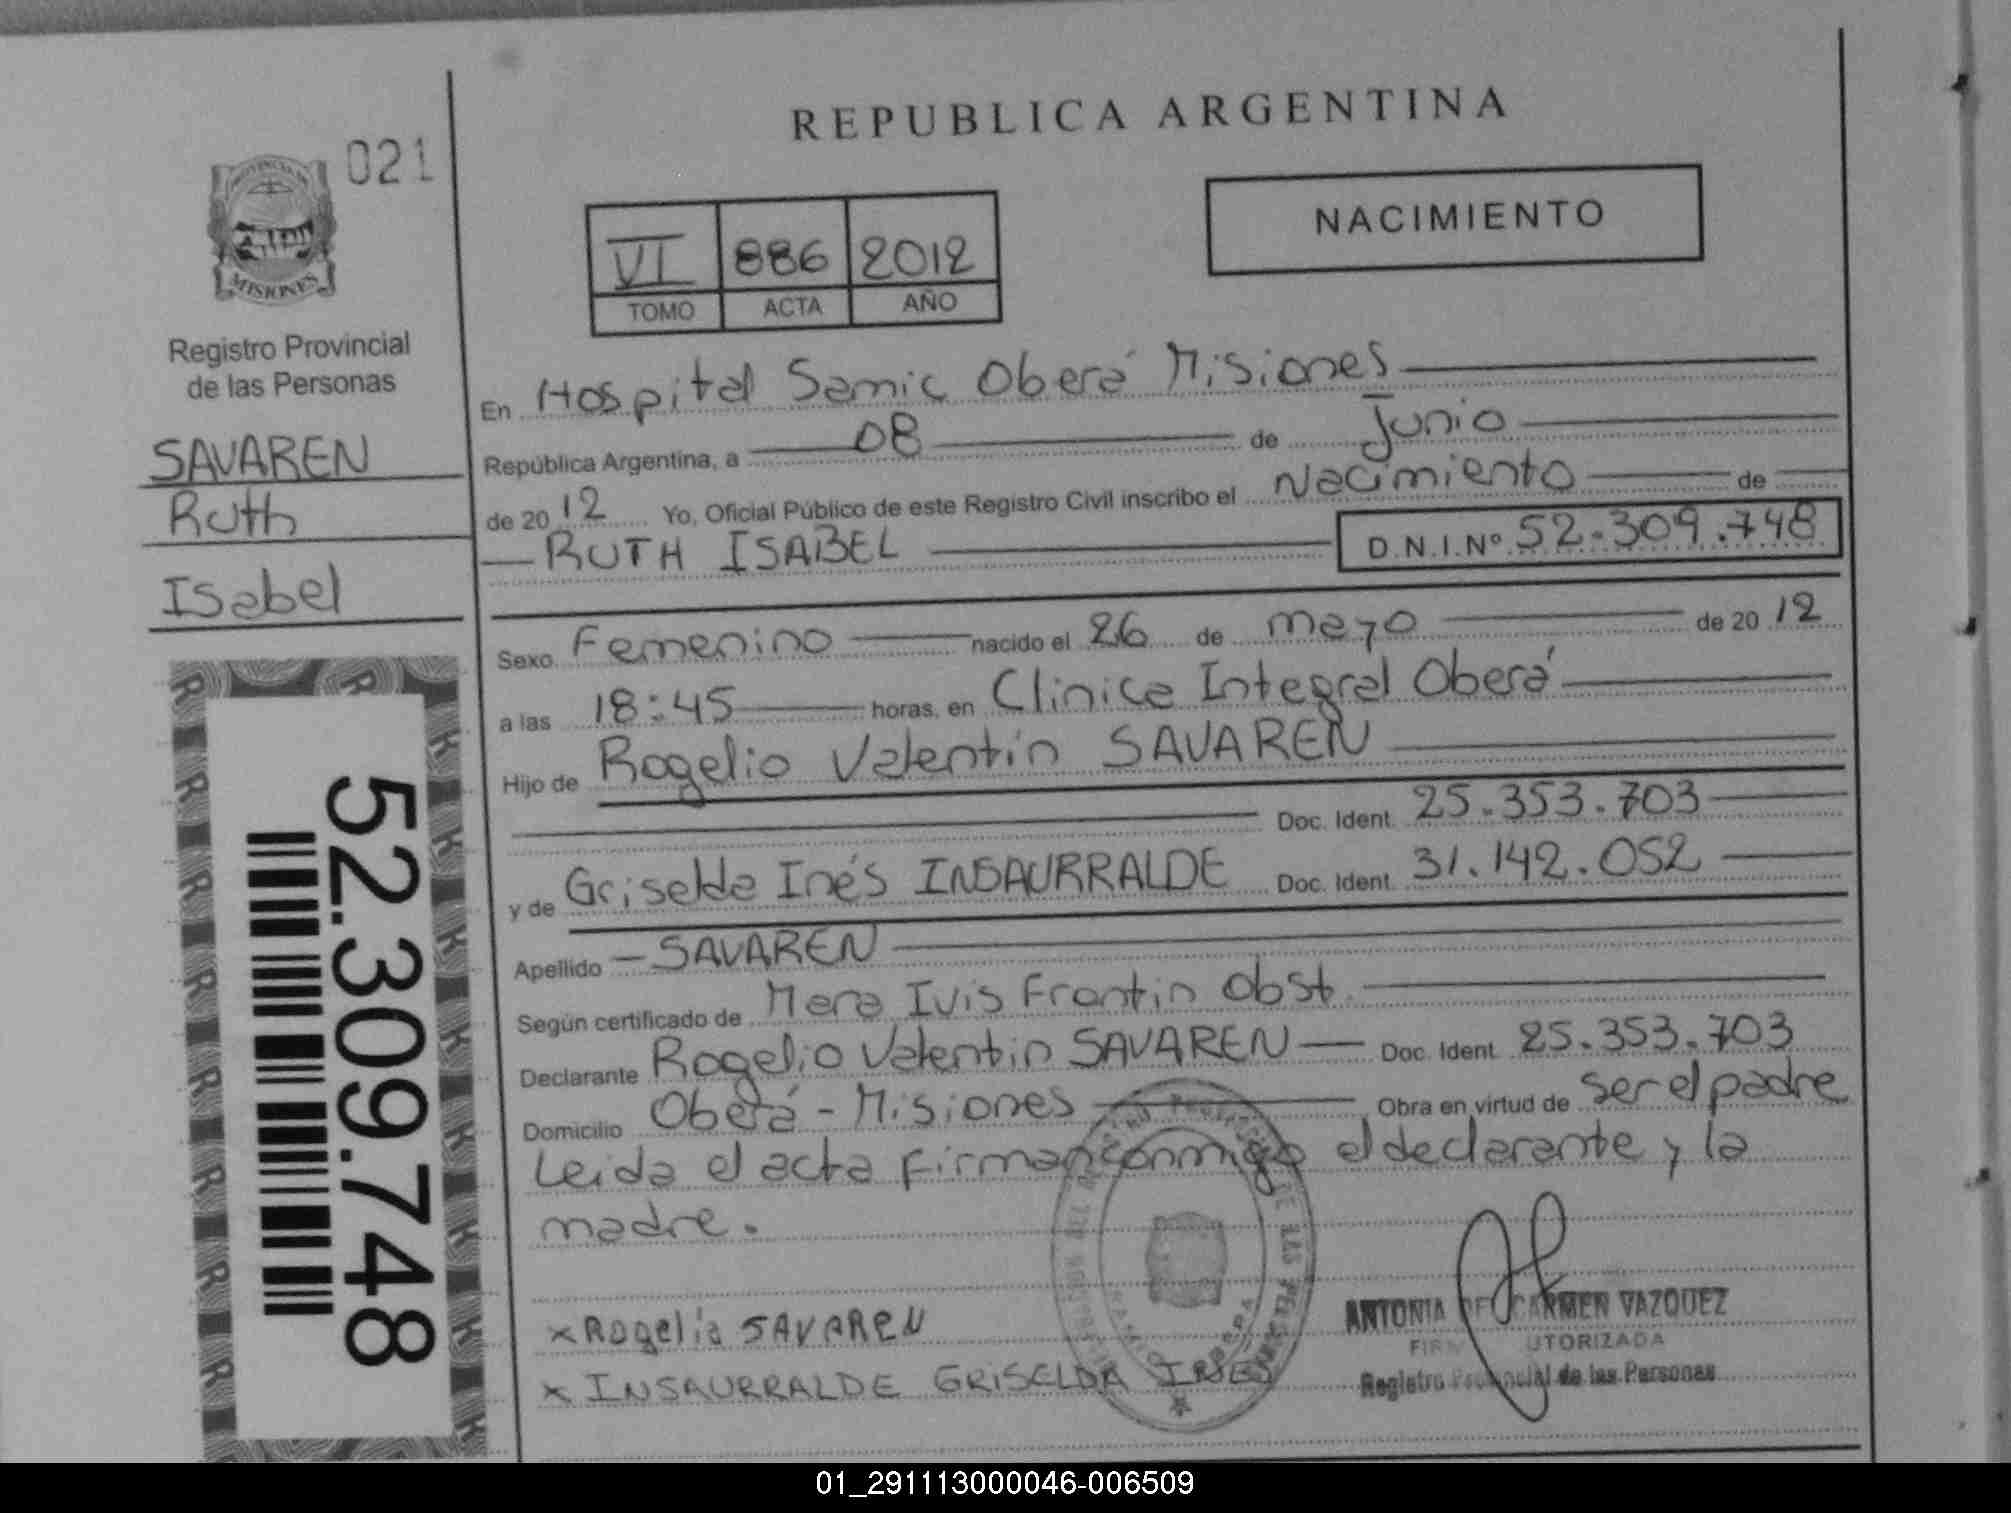 021
PROVINCIA DE
MISIONES
Registro Provincial
de las Personas
SAVAREN
Ruth
Isabel
52.309.748
REPUBLICA ARGENTINA
NACIMIENTO
VI 886 2012
TOMO ACTA AÑO
En Hospital Samic Oberá Misiones
República Argentina, a 08 de Junio
de 20 12 Yo, Oficial Público de este Registro Civil inscribo el Nacimiento de
RUTH ISABEL D.N.I.Nº 52.309.748
Sexo Femenino nacido el 26 de mayo de 20 12
a las 18:45 horas, en Clinica Integral Oberá
Hijo de Rogelio Valentín SAVAREN
Doc. Ident. 25.353.703
y de Griselda Inés INSAURRALDE Doc. Ident. 31.142.052
Apellido SAVAREN
Según certificado de Mara Ivis Frontin Obst.
Declarante Rogelio Valentin SAVAREN Doc. Ident. 25.353.703
Domicilio Oberá - Misiones Obra en virtud de ser el padre
Leida el acta firman conmigo el declarante y la
madre.
x Rogelio SAVAREN
x INSAURRALDE GRISELDA INES
ANTONIA DEL CARMEN VAZQUEZ
FIRMA AUTORIZADA
Registro Provincial de las Personas
01_291113000046-006509